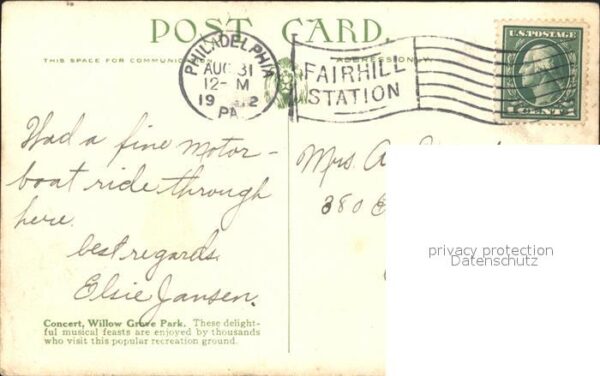 POST CARD.
THIS SPACE FOR COMMUNIC
ADDRESS ONLY
PHILADELPHIA
AUG 31
12-M
19 12
PA.
FAIRHILL
STATION
U.S. POSTAGE
1 CENT 1
Had a fine motor-
boat ride through
here.
best regards.
Elsie Jansen.
Mrs. A.
380
privacy protection
Datenschutz
Concert, Willow Grove Park. These delight-
ful musical feasts are enjoyed by thousands
who visit this popular recreation ground.